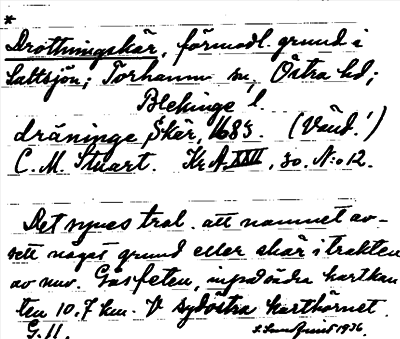 *
Drottningskär, förmodl. grund i
Saltsjön; Torhamn sn, Östra hd;
Blekinge l.
dräninge Skär, 1685. (Vänd!)
C. M. Stuart. Kr. A. XXII, 30. N:o 12.
Det synes trol. att namnet av-
sett något grund eller skär i trakten
av nuv. Gåsfeten, inpå södra kartkan
ten 10,7 km. V sydöstra karthörnet.
G. 11. 1936.